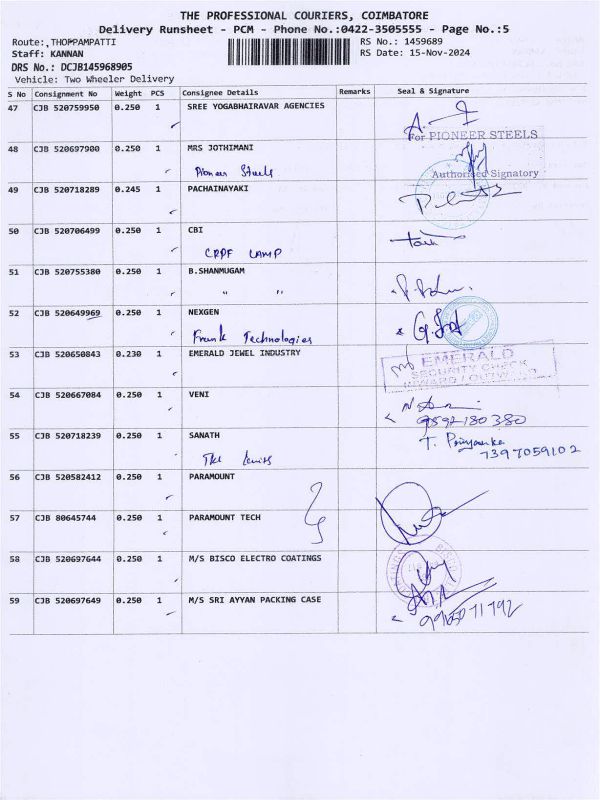 THE PROFESSIONAL COURIERS, COIMBATORE
Delivery Runsheet - PCM - Phone No.:0422-3505555 - Page No.:5
Route: THOPPAMPATTI RS No.: 1459689
Staff: KANNAN RS Date: 15-Nov-2024
DRS No.: DCJB145968905
Vehicle: Two Wheeler Delivery
S No Consignment No Weight PCS Consignee Details Remarks Seal & Signature
47 CJB 520759950 0.250 1 SREE YOGABHAIRAVAR AGENCIES
For PIONEER STEELS
48 CJB 520697900 0.250 1 MRS JOTHIMANI
Pioneer Steels Authorised Signatory
49 CJB 520718289 0.245 1 PACHAINAYAKI
50 CJB 520706499 0.250 1 CBI
CRPF CAMP
51 CJB 520755380 0.250 1 B.SHANMUGAM
" "
52 CJB 520649969 0.250 1 NEXGEN
Frank Technologies
53 CJB 520650843 0.230 1 EMERALD JEWEL INDUSTRY
EMERALD
SECURITY CHECK
INWARD / OUTWARD
54 CJB 520667084 0.250 1 VENI
9597180380
55 CJB 520718239 0.250 1 SANATH T. Priyanka
7397059102
56 CJB 520582412 0.250 1 PARAMOUNT
57 CJB 80645744 0.250 1 PARAMOUNT TECH
58 CJB 520697644 0.250 1 M/S BISCO ELECTRO COATINGS
BISCO
59 CJB 520697649 0.250 1 M/S SRI AYYAN PACKING CASE